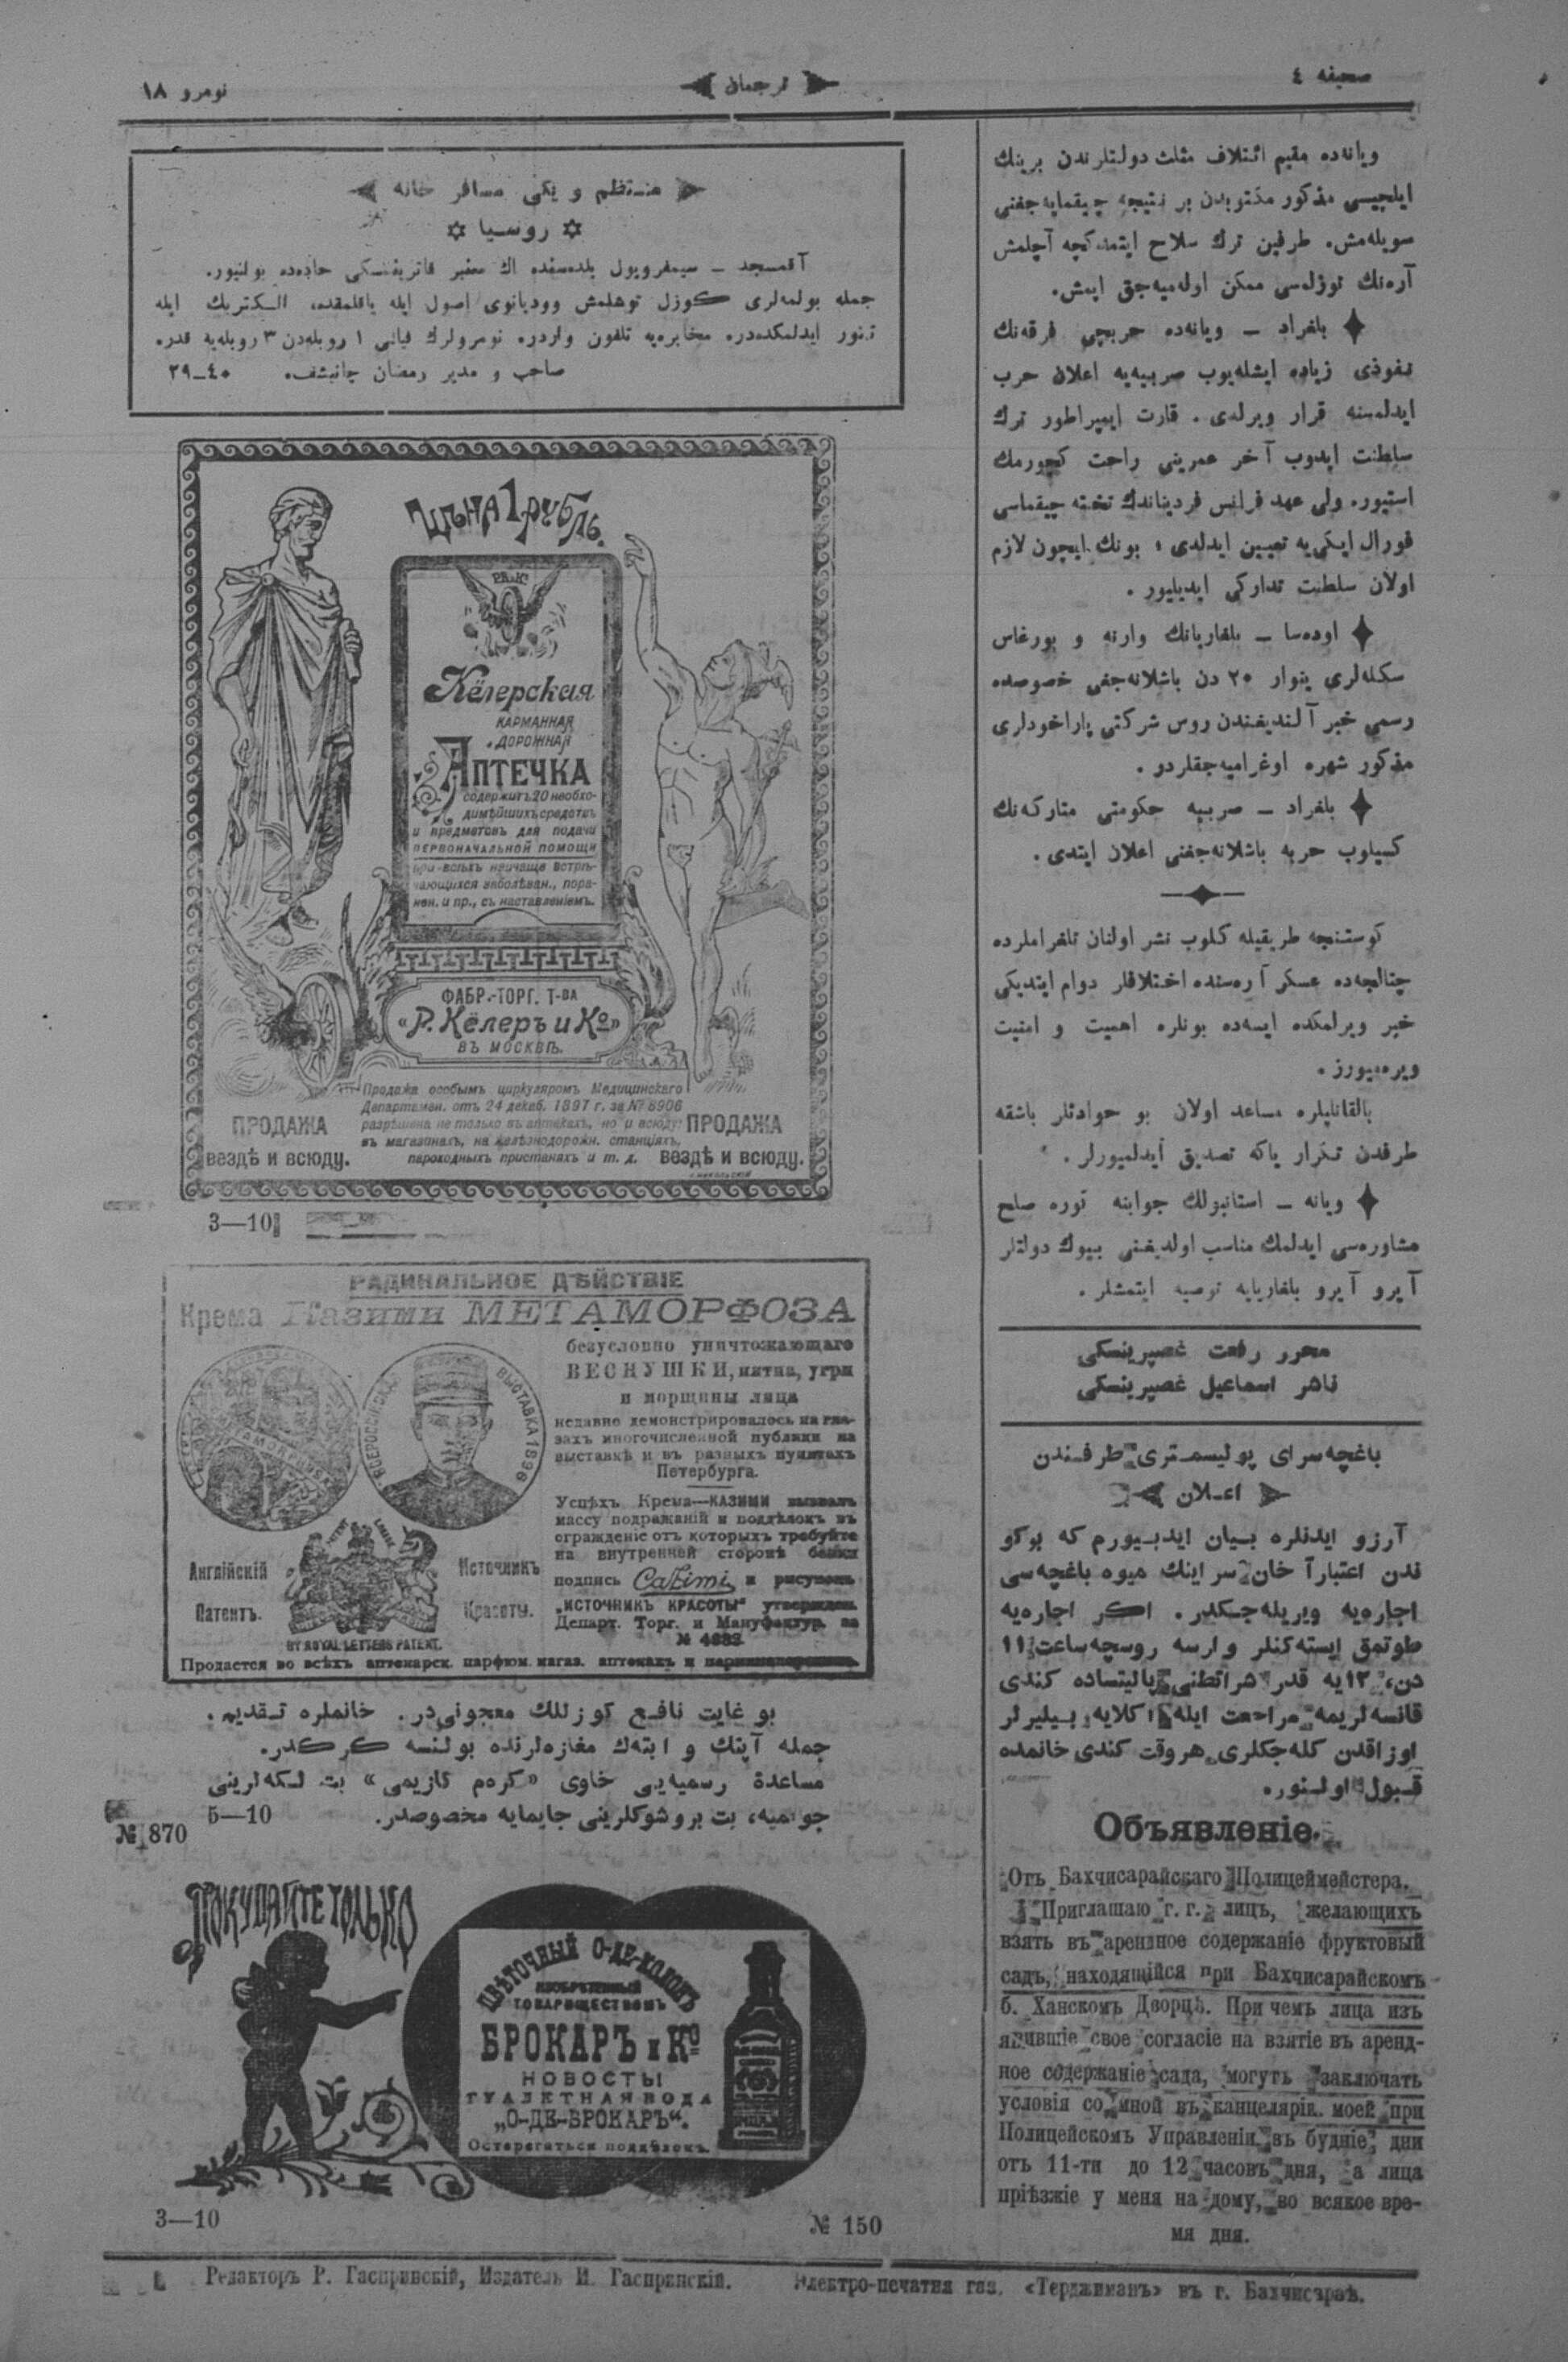 صحیفه ٤
ترجمان
نومرو ١٨
ویانه‌ده مقیم ائتلاف مثلث دولتلرندن برینك
ایلچیسی مذکور مکتوبدن بر نتیجه چیقمایه‌جغنی
سویله‌مش. طرفین ترك سلاح ایتمدکچه آچلمش
آره‌نك توزلمسی ممکن اوله‌میه‌جق ایمش.
بلغراد — ویانه‌ده حربجی فرقه‌نك
نفوذی زیاده ایشله‌یوب صربیه‌یه اعلان حرب
ایدلمسنه قرار ویرلدی . قارت ایمپراطور ترك
سلطنت ایدوب آخر عمرینی راحت کچورمك
استیور. ولی عهد فرانس فردیناندك تخته چیقماسی
فورال ایکی‌یه تعیین ایدلدی ؛ بونك ایچون لازم
اولان سلطنت تدارکی ایدیلیور .
اوده‌سا — بلغاریانك وارنه و بورغاس
سکله‌لری ینوار ٢٠ دن باشلانه‌جغی خصوصده
رسمی خبر آلندیغندن روس شرکتی پاراخودلری
مذکور شهره اوغرامیه‌جقلردو .
بلغراد — صربیه حکومتی متارکه‌نك
کسیلوب حربه باشلانه‌جغنی اعلان ایتدی .
کوستنجه طریقیله کلوب نشر اولنان تلغراملرده
چتالجه‌ده عسکر آره‌سنده اختلافلر دوام ایتدیکی
خبر ویرلمکده ایسه‌ده بونلره اهمیت و امنیت
ویره‌میورز .
بالقانلیلره مساعد اولان بو حوادثلر باشقه
طرفدن تکرار یاکه تصدیق ایدلمیورلر .
ویانه — استانبولك جوابنه توره صلح
مشاوره‌سی ایدلمك مناسب اولدیغنی بیوك دولتلر
آیرو آیرو بلغاریایه توصیه ایتمشلر .
محرر رفعت غصپرینسکی
ناشر اسماعیل غصپرینسکی
باغچه‌سرای پولیسمستری طرفندن
اعلان
آرزو ایدنلره بیان ایدییورم که بوکو
ندن اعتبارآ خان سراینك میوه باغچه‌سی
اجاره‌یه ویریله‌جکدر. اکر اجاره‌یه
طوتمق ایسته‌کنلر وارسه روسچه ساعت ١١
دن، ١٢یه قدر شرائطنی پالیتساده کندی
قانسه‌لریمه مراجعت ایله اکلایه بیلیرلر
اوزاقدن کله‌جکلری هروقت کندی خانمده
قبول اولنور.
Объявленіе.
Отъ Бахчисарайскаго Полицеймейстера.
Приглашаю г. г. лицъ, желающихъ
взять въ арендное содержаніе фруктовый
садъ, находящійся при Бахчисарайскомъ
б. Ханскомъ Дворцѣ. При чемъ лица изъ
явившіе свое согласіе на взятіе въ аренд-
ное содержаніе сада, могутъ заключать
условія со мной въ канцеляріи моей при
Полицейскомъ Управленіи въ будніе дни
отъ 11-ти до 12 часовъ дня, а лица
пріѣзжіе у меня на дому, во всякое вре-
мя дня.
منتظم و یکی مسافرخانه
روسیا
آقمسجد — سیمفروپول بلده‌سنده اك معتبر قاتریفنسکی جاده‌ده بولنیور.
جمله بولمه‌لری کوزل توشلمش وودیانوی اصول ایله یاقلمقده، الکتریك ایله
تنور ایدلمکده‌در. مخابره‌یه تلفون واردر. نومرولرك فیاتی ١ روبله‌دن ٣ روبله‌یه قدر.
صاحب و مدیر رمضان چانبشف. ٤٠—٢٩
ЦѢНА 1 РУБЛЬ.
Р.К. и Ко
Кёлерская
КАРМАННАЯ
ДОРОЖНАЯ
АПТЕЧКА
содержитъ 20 необхо-
димѣйшихъ средствъ
и предметовъ для подачи
ПЕРВОНАЧАЛЬНОЙ ПОМОЩИ
при всѣхъ наичаще встрѣ-
чающихся заболѣван., пора-
нен. и пр., съ наставленіемъ.
ФАБР.-ТОРГ. Т-ВА
«Р. Кёлеръ и Ко»
ВЪ МОСКВѢ.
Продажа особымъ циркуляромъ Медицинскаго
Департамен. отъ 24 декаб. 1897 г. за № 8906
разрѣшена не только въ аптекахъ, но и всюду:
въ магазинахъ, на желѣзнодорожн. станціяхъ,
пароходныхъ пристаняхъ и т. д.
ПРОДАЖА
вездѣ и всюду.
ПРОДАЖА
вездѣ и всюду.
3—10
РАДИКАЛЬНОЕ ДѢЙСТВІЕ
Крема Казими МЕТАМОРФОЗА
безусловно уничтожающаго
ВЕСНУШКИ, пятна, угри
и морщины лица
недавно демонстрировалось на гла-
захъ многочисленной публики на
выставкѣ и въ разныхъ пунктахъ
Петербурга.
Успѣхъ Крема—КАЗИМИ вызвалъ
массу подражаній и поддѣлокъ въ
огражденіе отъ которыхъ требуйте
на внутренней сторонѣ банки
подпись Cazimi и рисунокъ
„ИСТОЧНИКЪ КРАСОТЫ“ утвержден.
Департ. Торг. и Мануфактур. за
№ 4683
ВСЕРОССІЙСКАЯ ВЫСТАВКА 1896
Англійскій
Патентъ.
Источникъ
Красоты.
BY ROYAL LETTERS PATENT.
Продается во всѣхъ аптекарск. парфюм. магаз. аптекахъ и парикмахерскихъ.
بو غایت نافع کوزللك معجونی‌در. خانملره تقدیم.
جمله آپتك و ابته‌ك مغازه‌لرنده بولنسه کرکدر.
مساعدۀ رسمیه‌یی حاوی «کره‌م کازیمی» بت لکه‌لرینی
جویمیه، بت بروشوکلرینی جایمایه مخصوصدر. 5—10
№ 870
ПОКУПАЙТЕ ТОЛЬКО
ЦВѢТОЧНЫЙ О-ДЕ-КОЛОНЪ
ИЗОБРѢТЕННЫЙ
ТОВАРИЩЕСТВОМЪ
БРОКАРЪ и Ко
НОВОСТЬ!
ТУАЛЕТНАЯ ВОДА
„О-ДЕ-БРОКАРЪ“.
Остерегаться поддѣлокъ.
3—10
№ 150
Редакторъ Р. Гаспринскій, Издатель И. Гаспринскій. Электро-печатня газ. «Терджиманъ» въ г. Бахчисараѣ.